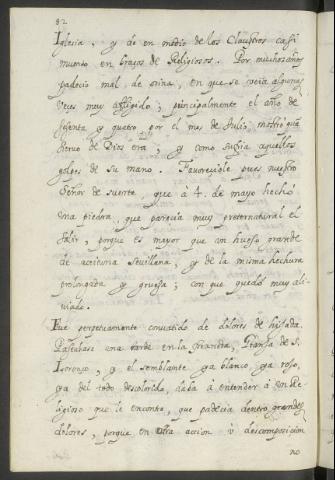 82
Iglesia. y de en medio de los Claustros casi
muerto en braços de Religiosos. Por muchos años
padecio mal de orina, en que se veia algunas
veces muy afligido; principalmente el año de
sesenta y quatro por el mes de Julio, mostro quã
siervo de Dios era; y como sufria aquellos
golpes de su mano. Favoreciole pues nuestro
Señor de suerte que à 4. de mayo hechó
una piedra, que parecia muy preternatural el
salir, porque es mayor que un hueso grande
de aceituna Sevillana, y de la misma hechura
prolongada y gruesa; con que quedó muy ali-
viado.
Fué perpetuamente convatido de dolores de hijada.
Passabase una tarde en la Granxilla, Granja de S.
Lorenço, y el semblante ya blanco, ya roxo,
ya del todo descolorido, daba à entender à un Re-
ligioso que le encontro, que padecia dentro grandes
dolores, porque en otra accion ò descomposicion
no